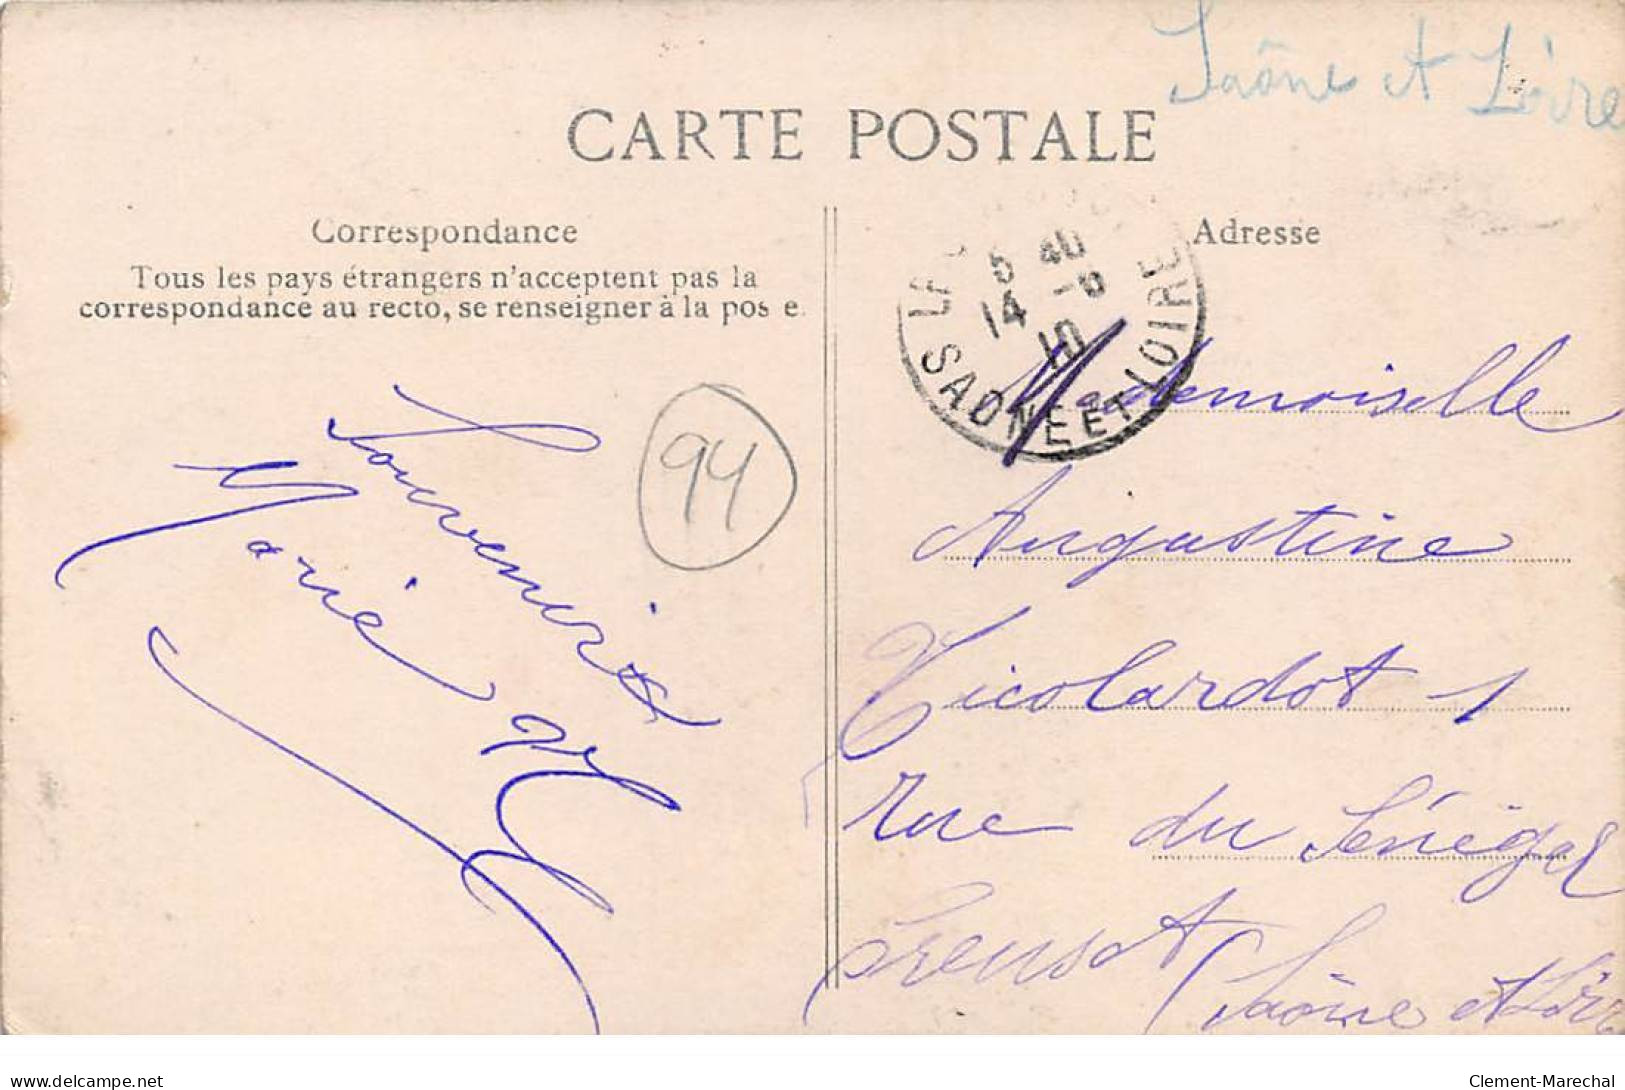 Saône et Loire
CARTE POSTALE
Correspondance
Tous les pays étrangers n'acceptent pas la
correspondance au recto, se renseigner à la pos e.
Souvenirs
Marie
94
Adresse
LA
5 40
14 -8
10
SAONE ET LOIRE
Mademoiselle
Augustine
Nicolardot 1
rue du Sénégal
Creusot
(Saône et Loire
delcampe.net
Clement-Marechal